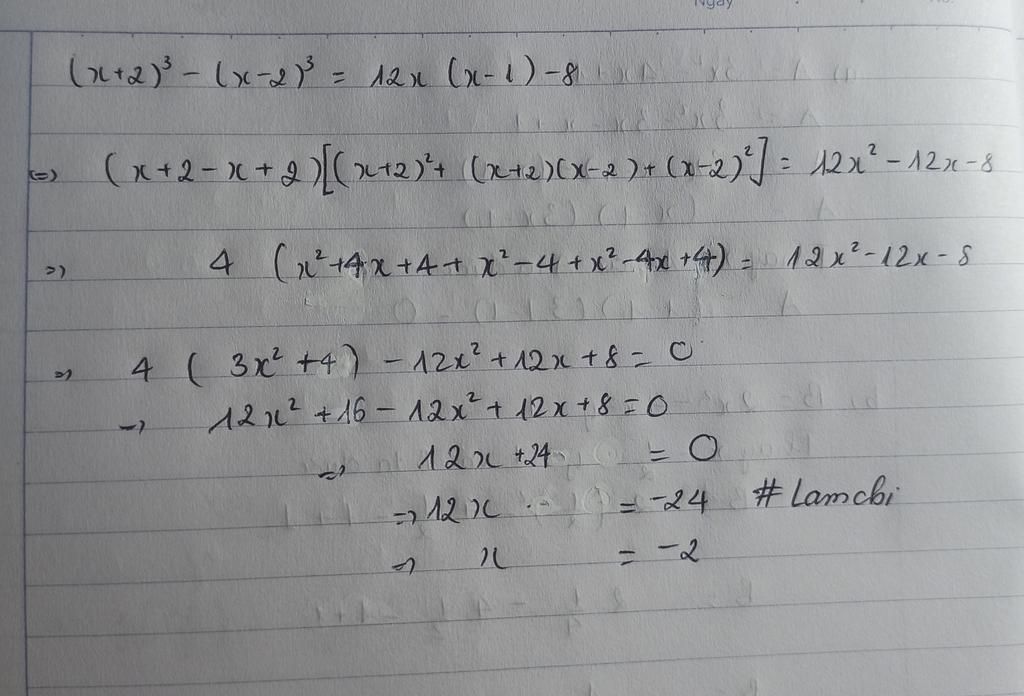 Ngày
(x+2)³ - (x-2)³ = 12x (x-1) - 8
(=) (x+2-x+2)[(x+2)²+ (x+2)(x-2)+(x-2)²] = 12x² - 12x - 8
=> 4 (x²+4x+4+x²-4+x²-4x+4) = 12x² - 12x - 8
=> 4 ( 3x² +4) - 12x² + 12x + 8 = 0
=> 12x² + 16 - 12x² + 12x + 8 = 0
=> 12x + 24 = 0
=> 12x = -24 # Lamchi
=> x = -2